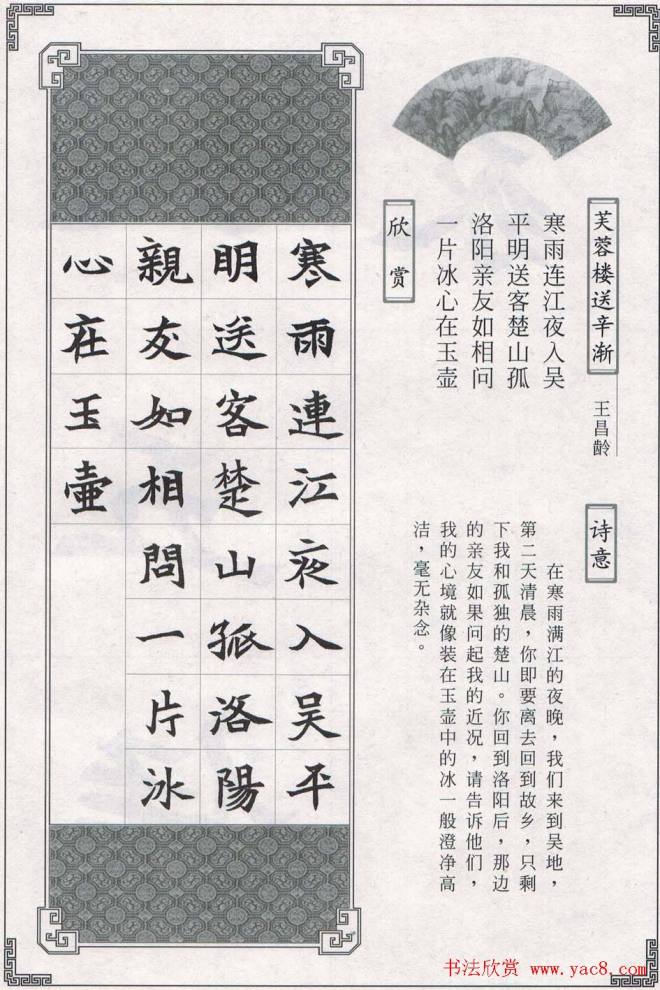 芙蓉楼送辛渐
王昌龄
寒雨连江夜入吴
平明送客楚山孤
洛阳亲友如相问
一片冰心在玉壶
欣赏
诗意
在寒雨满江的夜晚，我们来到吴地，
第二天清晨，你即要离去回到故乡，只剩
下我和孤独的楚山。你回到洛阳后，那边
的亲友如果问起我的近况，请告诉他们，
我的心境就像装在玉壶中的冰一般澄净高
洁，毫无杂念。
寒雨連江夜入吴平
明送客楚山孤洛陽
親友如相問一片冰
心在玉壺
书法欣赏 www.yac8.com